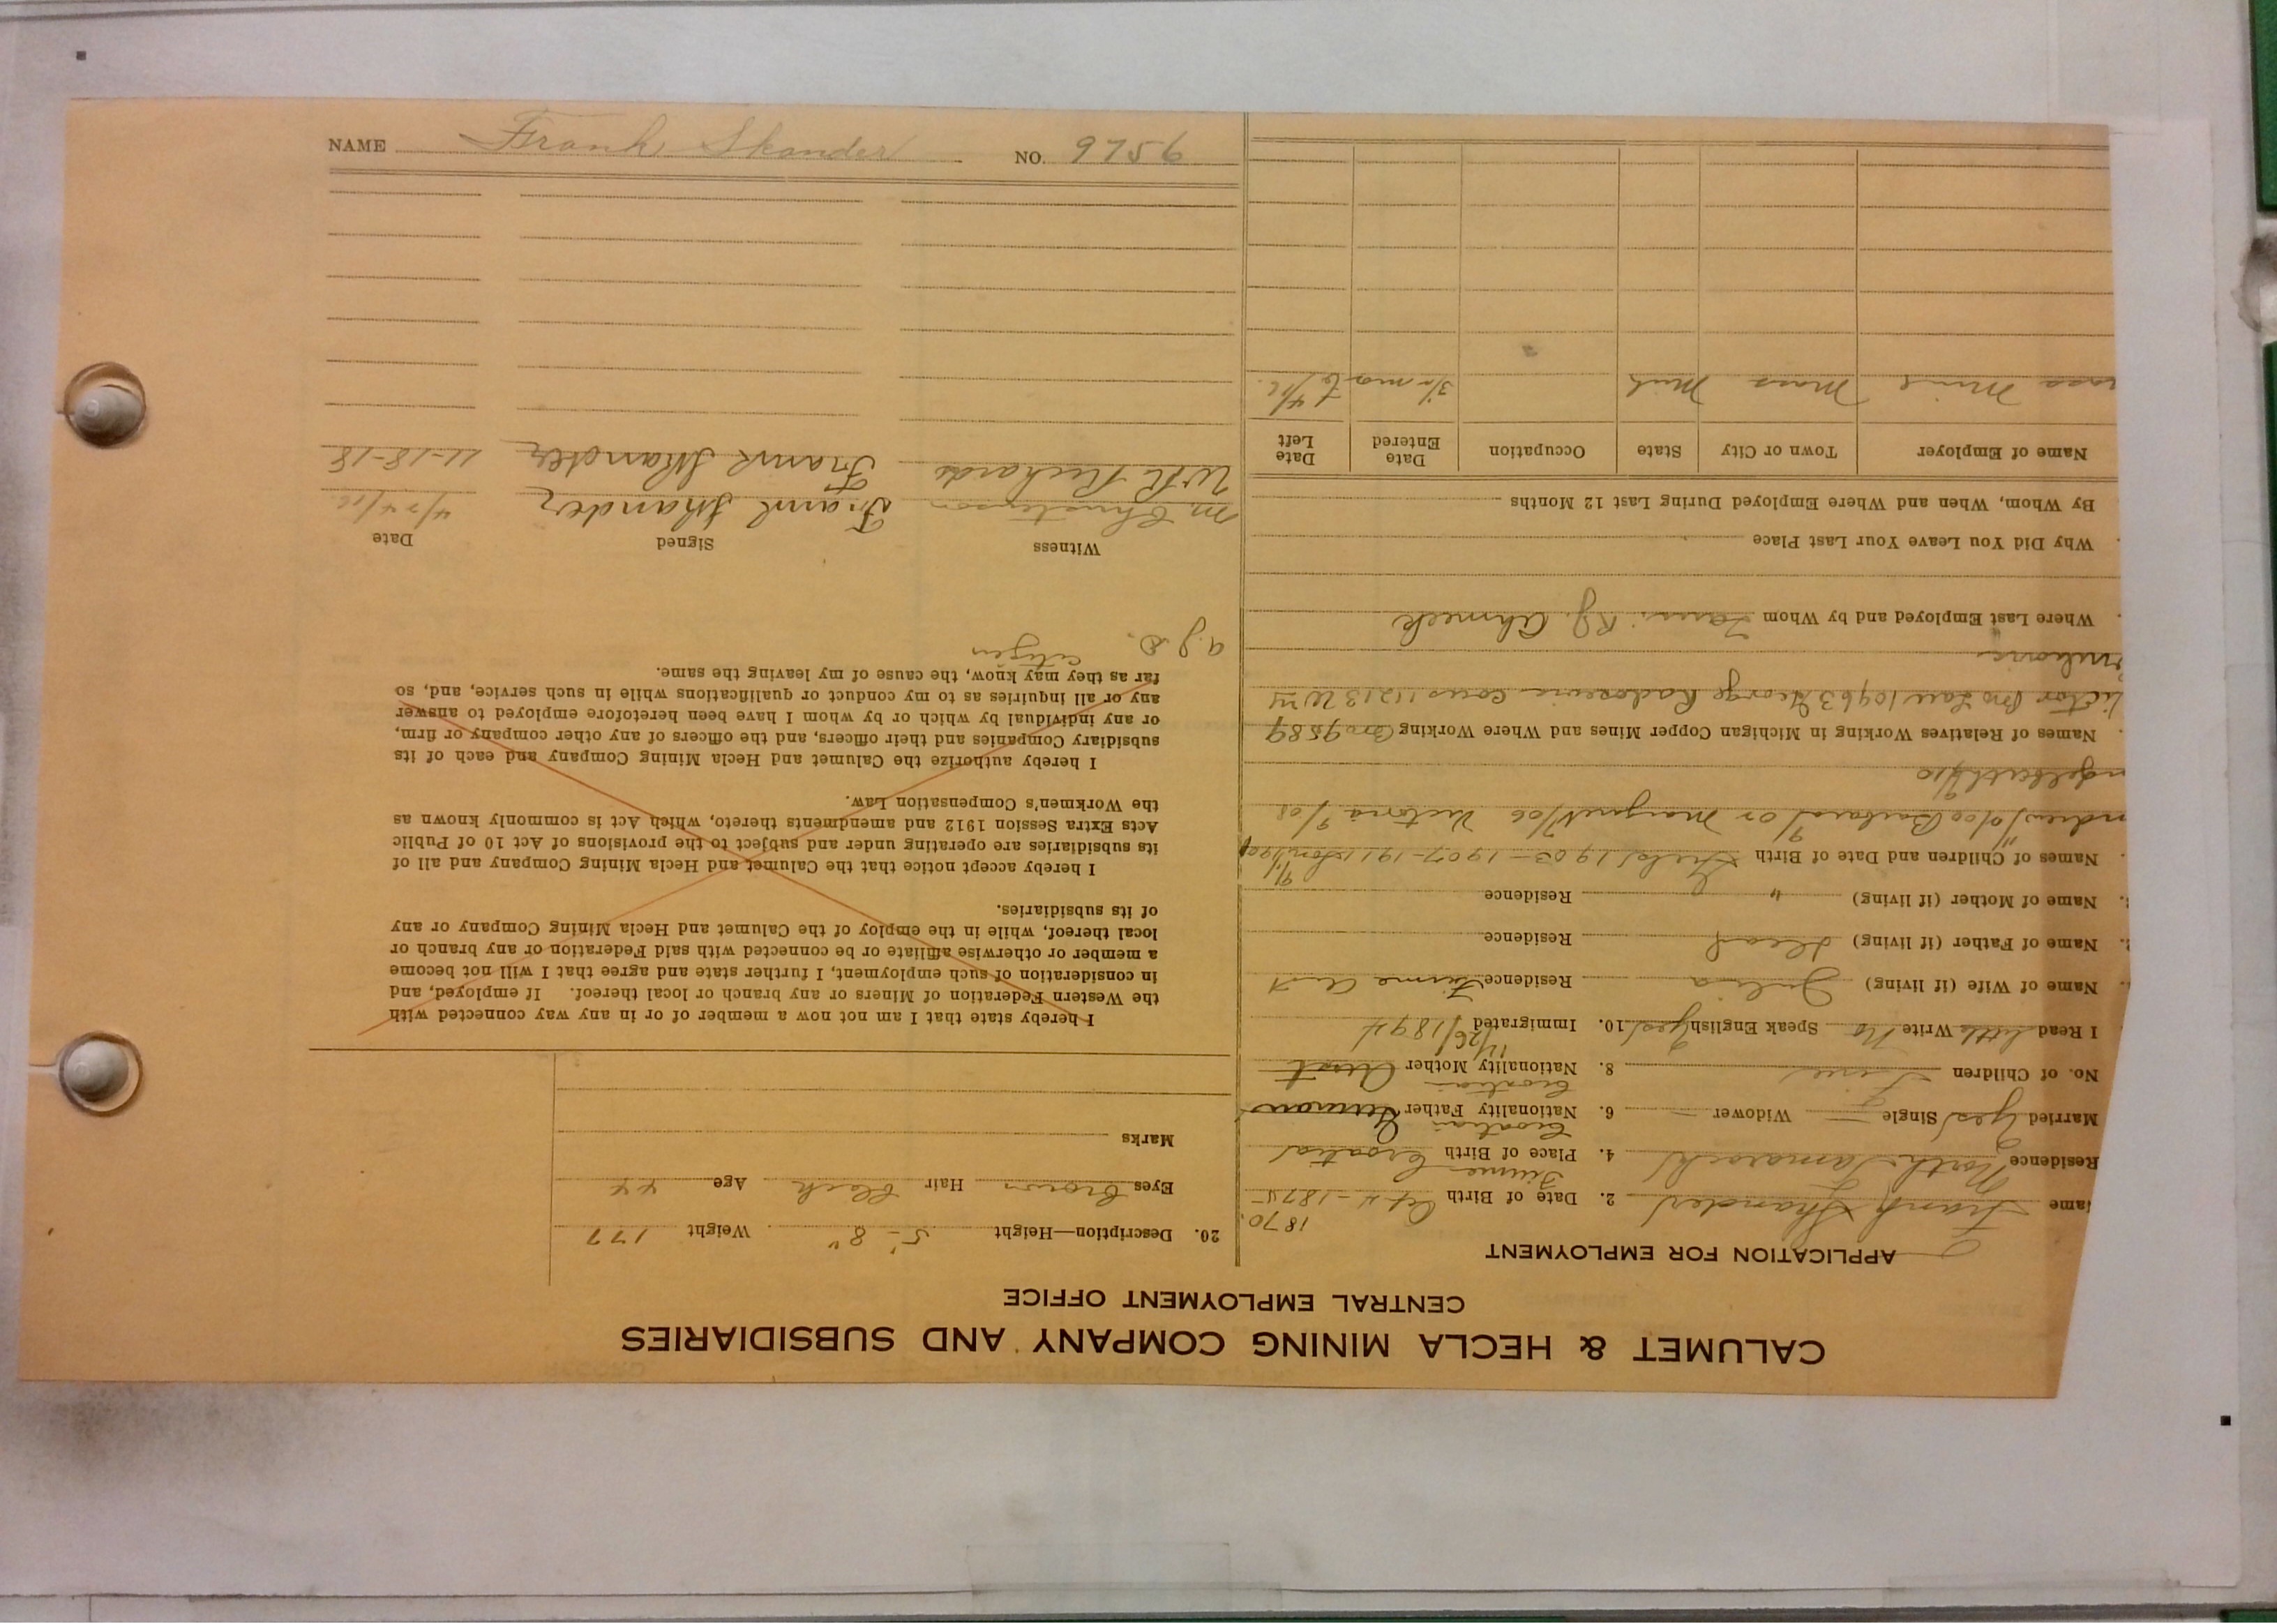 CALUMET & HECLA MINING COMPANY AND SUBSIDIARIES
CENTRAL EMPLOYMENT OFFICE
APPLICATION FOR EMPLOYMENT
ame Frank Skander 2. Date of Birth Oct 4 - 1875 1870
Residence North Tamarack 4. Place of Birth Croatia
Married Yes Single — Widower — 6. Nationality Father German Croatian
No. of Children Five 8. Nationality Mother Aust Croatian
I Read little Write No Speak English Yes 10. Immigrated 1894
Name of Wife (if living) Julia Residence Fiume Aust
Name of Father (if living) Dead Residence
Name of Mother (if living) " Residence
Names of Children and Date of Birth 1903 - 1907 - 1911
Barbara Margaret /06 Victoria 9/08
Names of Relatives Working in Michigan Copper Mines and Where Working Bro 9589
Bro Law 10463 George 11213
Where Last Employed and by Whom R.J. Ahmeek
Why Did You Leave Your Last Place
By Whom, When and Where Employed During Last 12 Months
Name of Employer Town or City State Occupation Date Entered Date Left
Mass Mich 3½ mo to 4/16.
20. Description—Height 5'-8" Weight 177
Eyes brown Hair black Age 44
Marks
I hereby state that I am not now a member of or in any way connected with
the Western Federation of Miners or any branch or local thereof. If employed, and
in consideration of such employment, I further state and agree that I will not become
a member or otherwise affiliate or be connected with said Federation or any branch or
local thereof, while in the employ of the Calumet and Hecla Mining Company or any
of its subsidiaries.
I hereby accept notice that the Calumet and Hecla Mining Company and all of
its subsidiaries are operating under and subject to the provisions of Act 10 of Public
Acts Extra Session 1912 and amendments thereto, which Act is commonly known as
the Workmen's Compensation Law.
I hereby authorize the Calumet and Hecla Mining Company and each of its
subsidiary Companies and their officers, and the officers of any other company or firm,
or any individual by which or by whom I have been heretofore employed to answer
any or all inquiries as to my conduct or qualifications while in such service, and, so
far as they may know, the cause of my leaving the same.
citizen
Witness Signed Date
M. Christenson Frank Skander 4/24/16.
W R Richards Frank Skander 11-18-18
NAME Frank Skander NO. 9756